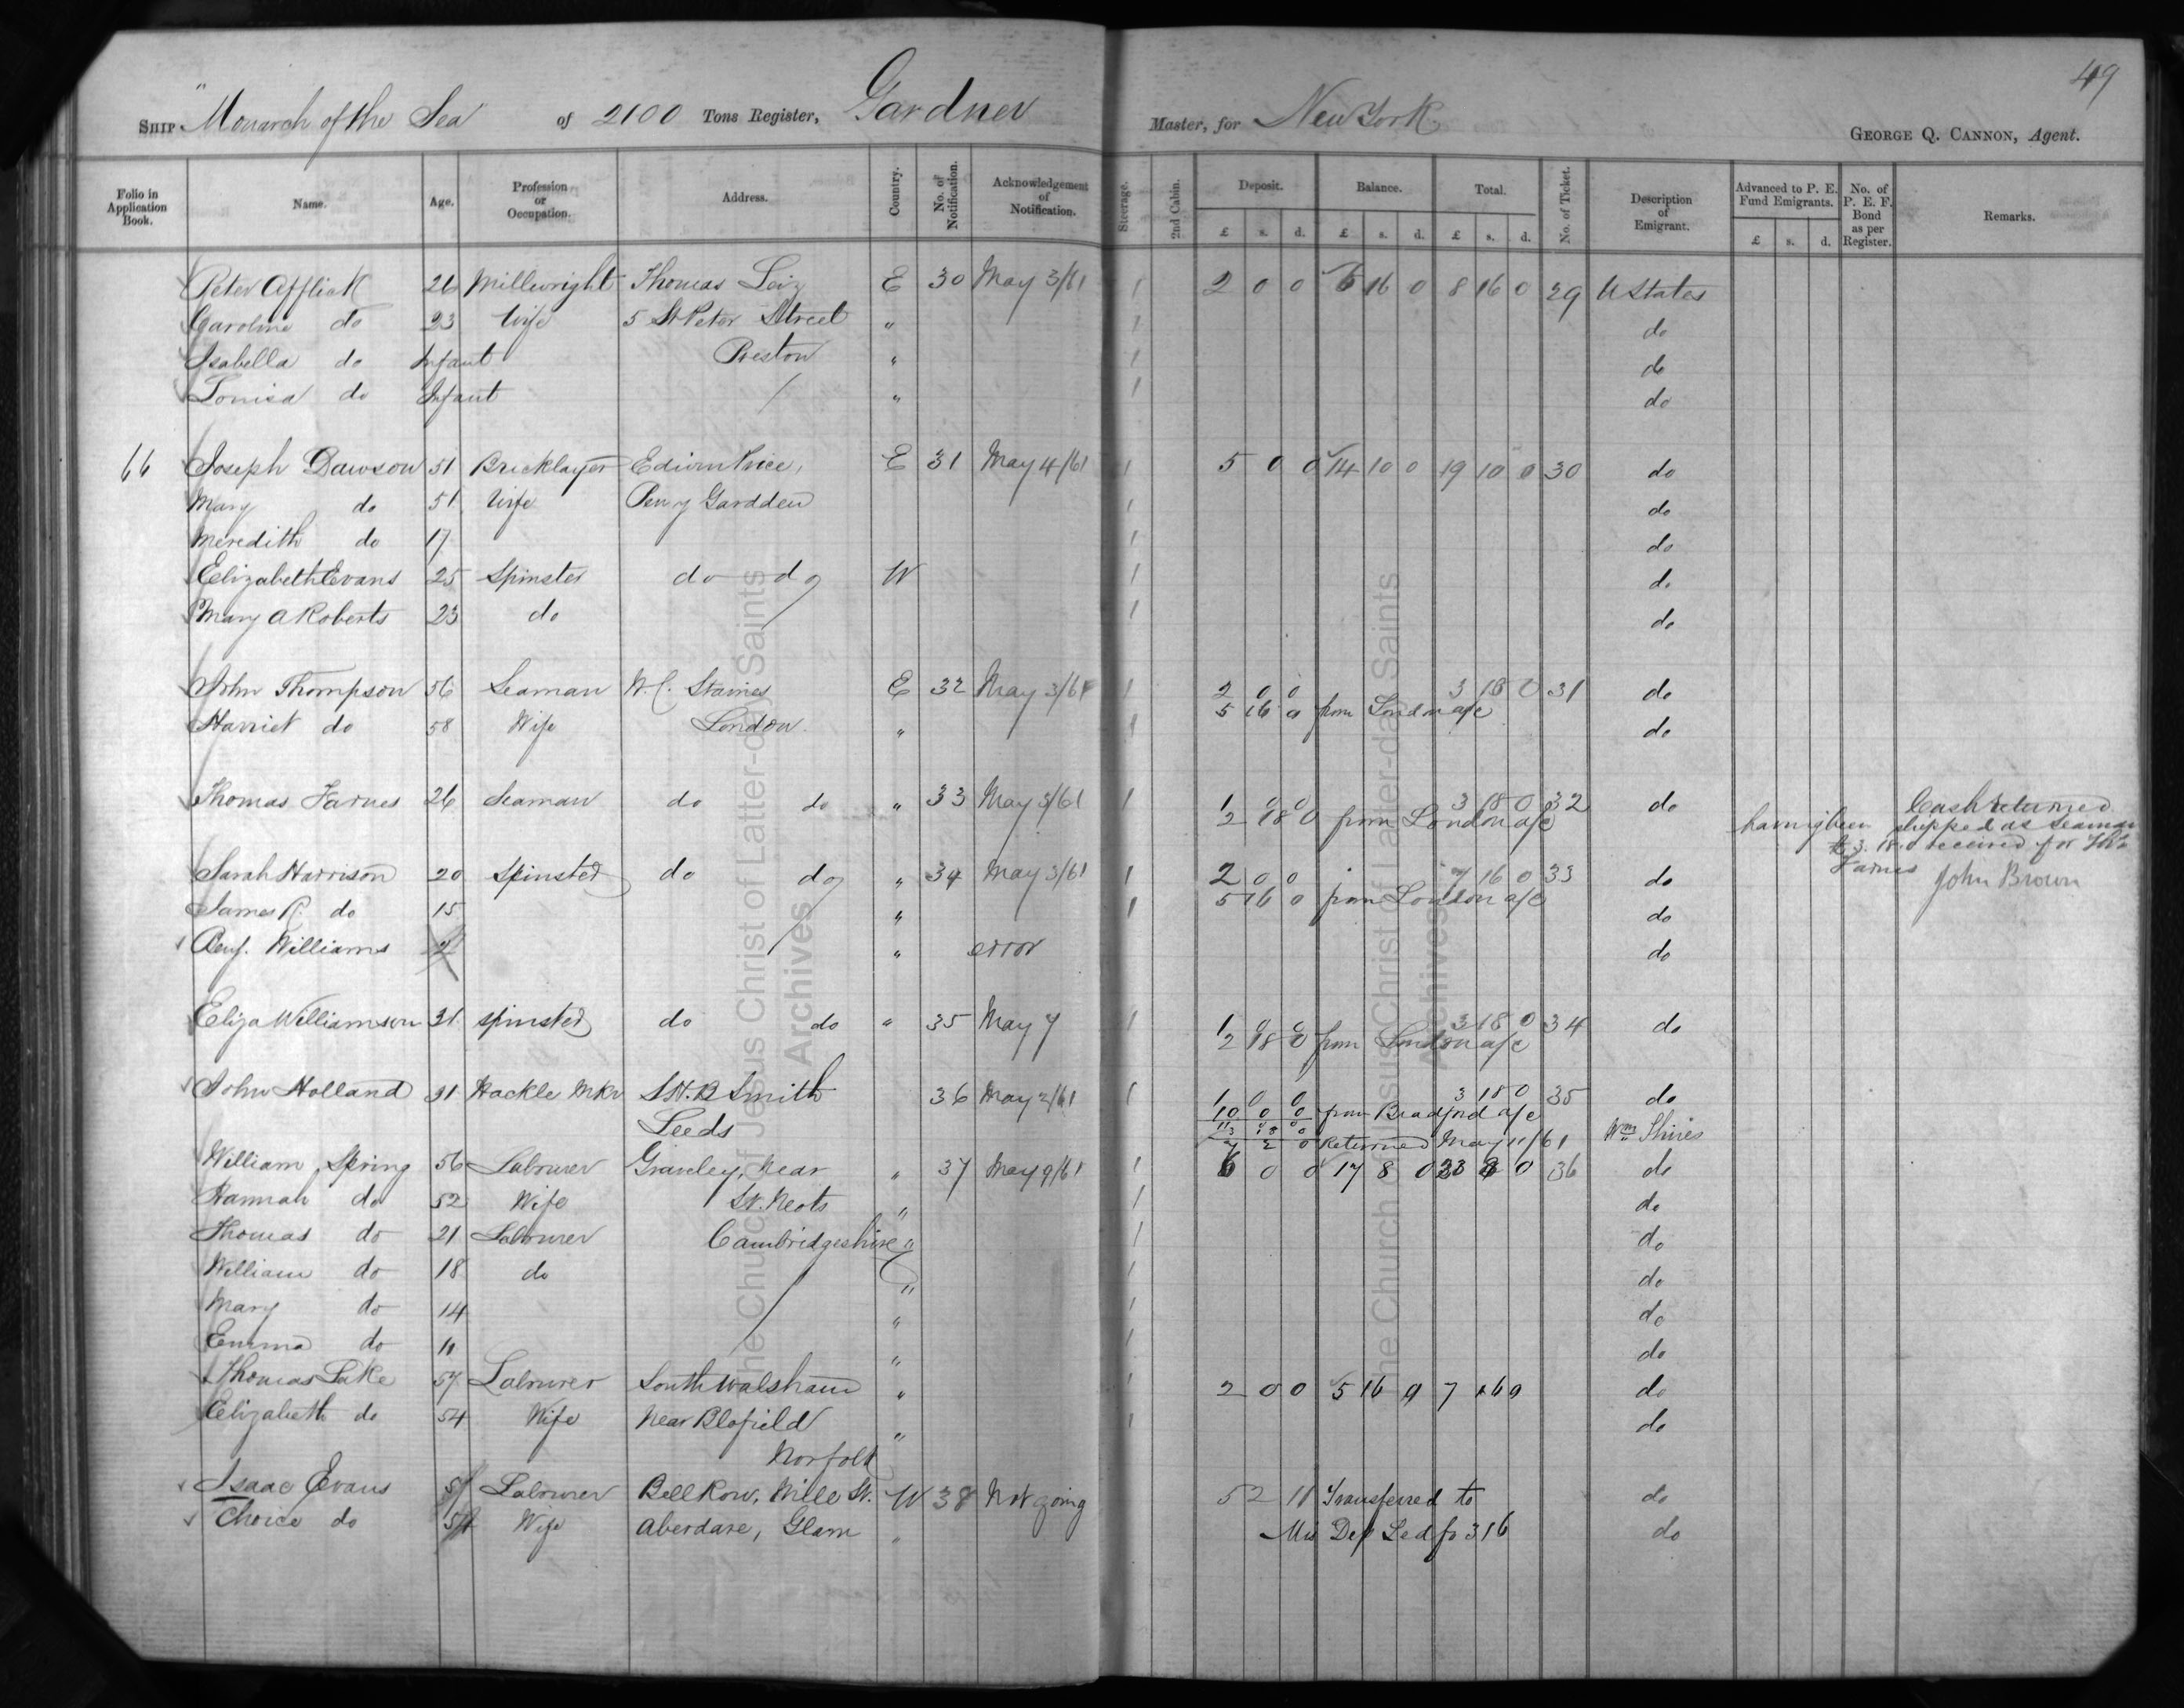 49
SHIP "Monarch of the Sea" of 2100 Tons Register, Gardner Master, for New York
GEORGE Q. CANNON, Agent.
Folio in Application Book. Name. Age. Profession or Occupation. Address. Country. No. of Notification. Acknowledgement of Notification. Steerage. 2nd Cabin. Deposit. Balance. Total. No. of Ticket. Description of Emigrant. Advanced to P. E. Fund Emigrants. No. of P. E. F. Bond as per Register. Remarks.
£ s. d. £ s. d. £ s. d. £ s. d.
Peter Afflick 26 Millwright Thomas E 30 May 3/61 1 2 0 0 6 16 0 8 16 0 29 U States
Caroline do 23 Wife 5 St Peter Street " 1 do
Isabella do Infant Preston " 1 do
Louisa do Infant " 1 do
66 Joseph Dawson 51 Bricklayer Edwin Price, E 31 May 4/61 1 5 0 0 14 10 0 19 10 0 30 do
Mary do 51 Wife Pen y Gardden 1 do
Meredith do 17 1 do
Elizabeth Evans 25 Spinster do do W 1 do
Mary A Roberts 23 do 1 do
John Thompson 56 Seaman W. C. Staines E 32 May 3/61 1 2 0 0 3 18 0 31 do
5 16 0 from London a/c
Harriet do 58 Wife London " 1 do
Thomas Farnes 26 Seaman do do " 33 May 3/61 1 1 0 0 3 18 0 32 do Cash returned
2 18 0 from London a/c having been shipped as seaman
£3.18.0 received for Thos
Farnes John Brown
Sarah Harrison 20 Spinster do do " 34 May 3/61 1 2 0 0 7 16 0 33 do
5 16 0 from London a/c
James R. do 15 " 1 do
Benj. Williams 2 " error do
Eliza Williamson 31 spinster do do " 35 May 7 1 1 0 0 3 18 0 34 do
2 18 0 from London a/c
John Holland 31 Hackle Mkr S. H. B Smith 36 May 2/61 1 1 0 0 3 18 0 35 do
10 0 0 from Bradford a/c
Leeds 11 0 0
3 18 0 Wm Shires
7 2 0 Returned May 11/61
William Spring 56 Labourer Graveley, Near " 37 May 9/61 1 6 0 0 17 8 0 23 8 0 36 do
Hannah do 52 Wife St. Neots " 1 do
Thomas do 21 Labourer Cambridgeshire " 1 do
William do 18 do " 1 do
Mary do 14 " 1 do
Emma do 11 " 1 do
Thomas Lake 57 Labourer South Walsham " 1 2 0 0 5 16 0 7 16 0 do
Elizabeth do 54 Wife Near Blofield " 1 do
Norfolk
Isaac Evans 51 Labourer Bell Row, Mill St. W 38 Not going 5 2 11 Transferred to do
Choice do Wife Aberdare, Glam " Mis Dep Led fo 316 do
The Church of Jesus Christ of Latter-day Saints
Archives
The Church of Jesus Christ of Latter-day Saints
Archives